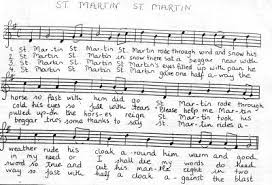 ST. MARTIN ST. MARTIN
1. St. Mar-tin St. Mar-tin St. Martin rode through wind and snow his
2. St. Martin St. Martin in snow there sat a beggar near with
3. St. Martin St. Martin St. Martin's eyes filled up with pain he
4. St. Martin St. Martin St. Martin gave one half a-way the
horse so fast with him did go St. Mar-tin rode through
cold his eyes so full with tears "Please help me Mar-tin
pulled up-on the hors-es reign St. Mar-tin took
beggar tries some thanks to say St. Mar-tin rides a-
weather rude his cloak a-round him warm and good.
in my need or I shall die my words do heed
sword so true and cut his man-tle right in two
way so fast with half a cloak a-gainst the blast